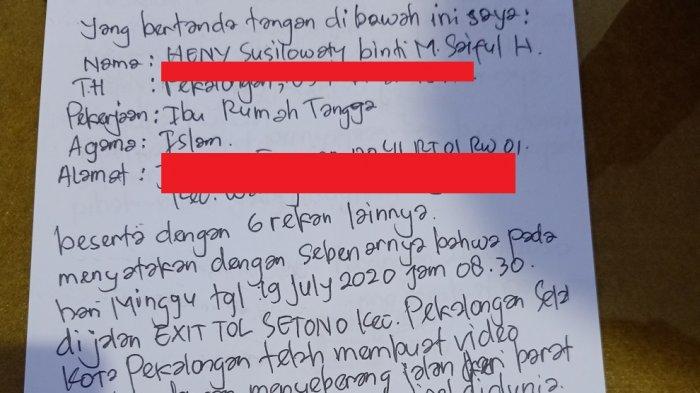 Yang bertanda tangan dibawah ini saya:
Nama : HENY Susilowaty binti M. Saiful H.
T.H : Pekalongan,
Pekerjaan : Ibu Rumah Tangga
Agama : Islam.
Alamat : RT 01 RW 01.
Kec.
beserta dengan 6 rekan lainnya.
menyatakan dengan sebenarnya bahwa pada
hari Minggu tgl 19 July 2020 jam 08.30.
di jalan EXIT TOL SETONO Kec. Pekalongan
Kota Pekalongan telah membuat video
menyeberang jalan dari barat
didunia.